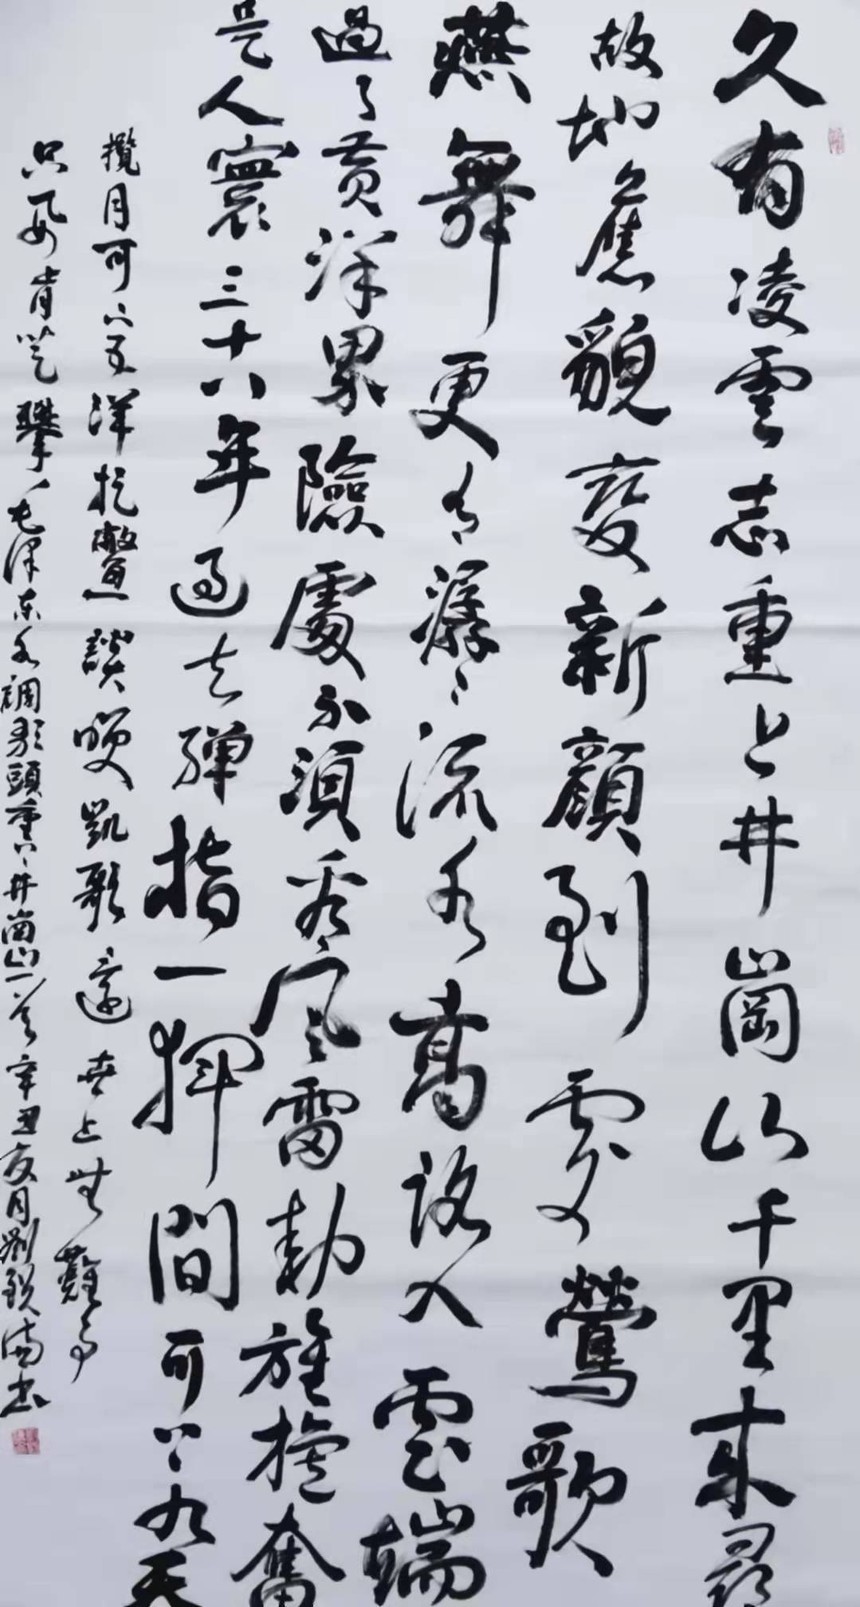 久有凌雲志重上井崗山千里來尋
故地舊貌變新顏到處鶯歌
燕舞更有潺々流水高路入雲端
過了黃洋界險處不須看風雷動旌旗奮
是人寰三十八年過去彈指一揮間可上九天
攬月可下五洋捉鱉談笑凱歌還世上無難事
只要肯登攀毛澤東水調歌頭重上井崗山一首辛丑夏月劉銳滿書